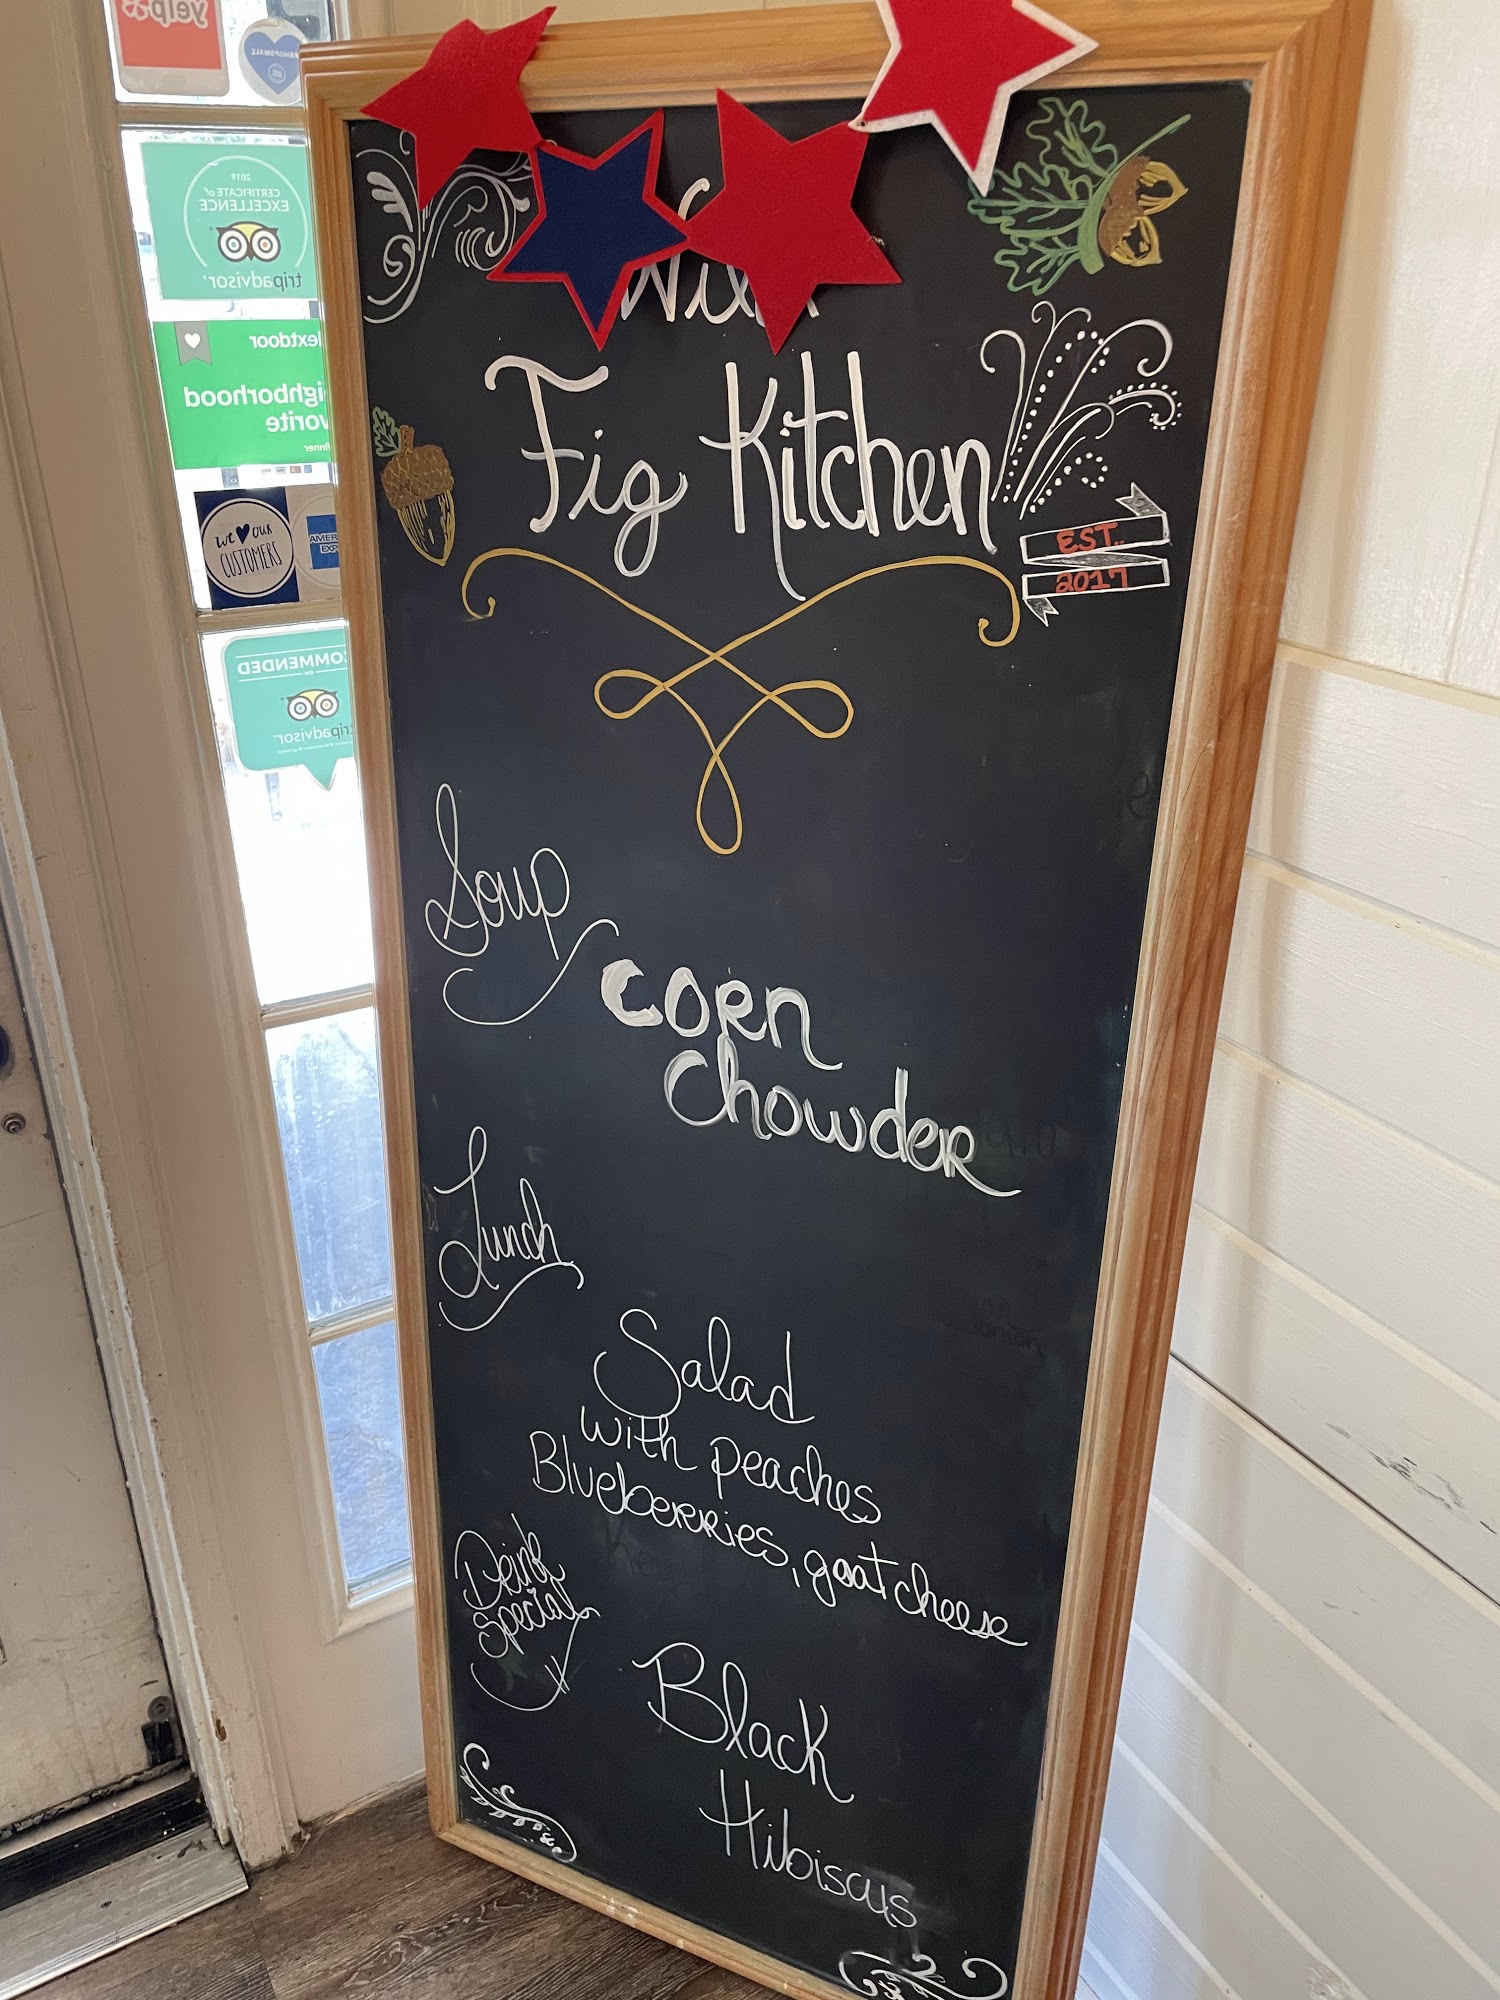 yelp
SHOPSMALL
2019
CERTIFICATE of
EXCELLENCE
tripadvisor
Nextdoor
Neighborhood
Favorite
Winner
We ♥ OUR
CUSTOMERS
AMERICAN
EXPRESS
RECOMMENDED
ON
tripadvisor
Wild
Fig Kitchen
EST.
2017
Soup
Corn
Chowder
Lunch
Salad
with peaches
Blueberries, goat cheese
Drink
Special
Black
Hibiscus